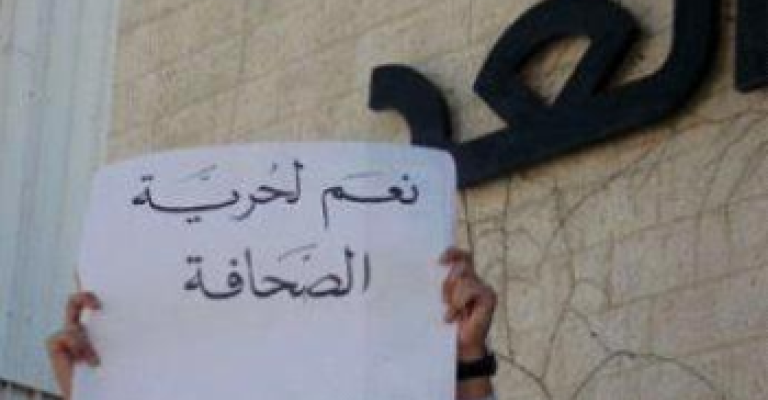 نعَم لحُريَّة
الصَّحافة